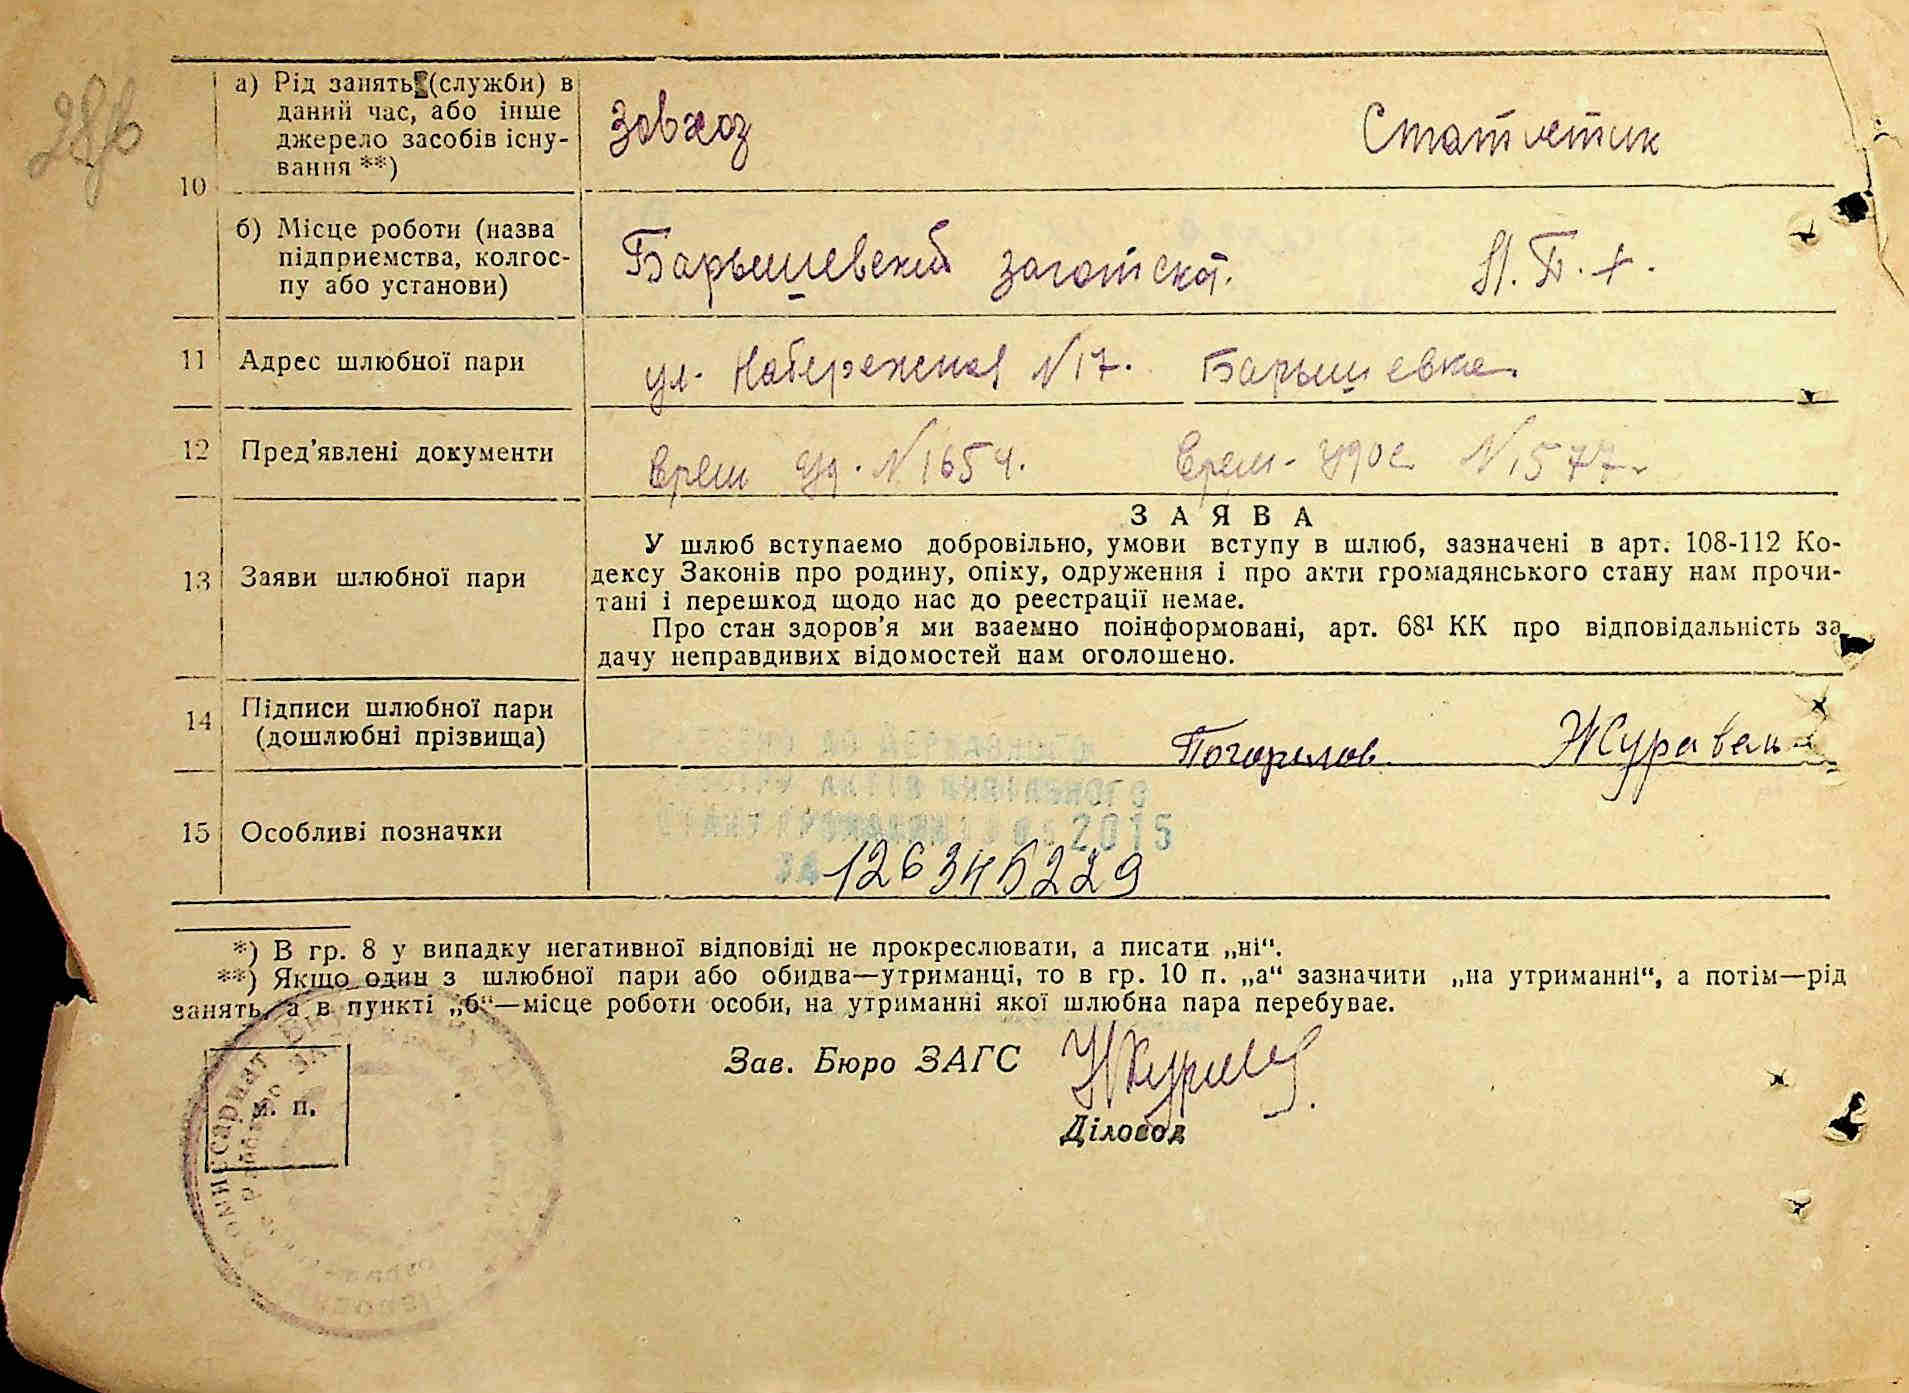 а) Рід занять (служби) в
даний час, або інше
джерело засобів існу-
вання **)
Завхоз
Статистик
10
б) Місце роботи (назва
підприємства, колгос-
пу або установи)
Барышевский заготскот.
11 Адрес шлюбної пари
ул. Набережная №17. Барышевка
12 Пред'явлені документи
Врем уд. №1654. Врем. удос №1577
З А Я В А
У шлюб вступаємо добровільно, умови вступу в шлюб, зазначені в арт. 108-112 Ко-
13 Заяви шлюбної пари
дексу Законів про родину, опіку, одруження і про акти громадянського стану нам прочи-
тані і перешкод щодо нас до реестрації немає.
Про стан здоров'я ми взаємно поінформовані, арт. 68¹ КК про відповідальність за
дачу неправдивих відомостей нам оголошено.
14 Підписи шлюбної пари
(дошлюбні прізвища)
Погорилов Журавель
15 Особливі позначки
2015
126345229
*) В гр. 8 у випадку негативної відповіді не прокреслювати, а писати „ні“.
**) Якщо один з шлюбної пари або обидва—утриманці, то в гр. 10 п. „а“ зазначити „на утриманні“, а потім—рід
занять, а в пункті „б“—місце роботи особи, на утриманні якої шлюбна пара перебуває.
Зав. Бюро ЗАГС
м. п.
Діловод